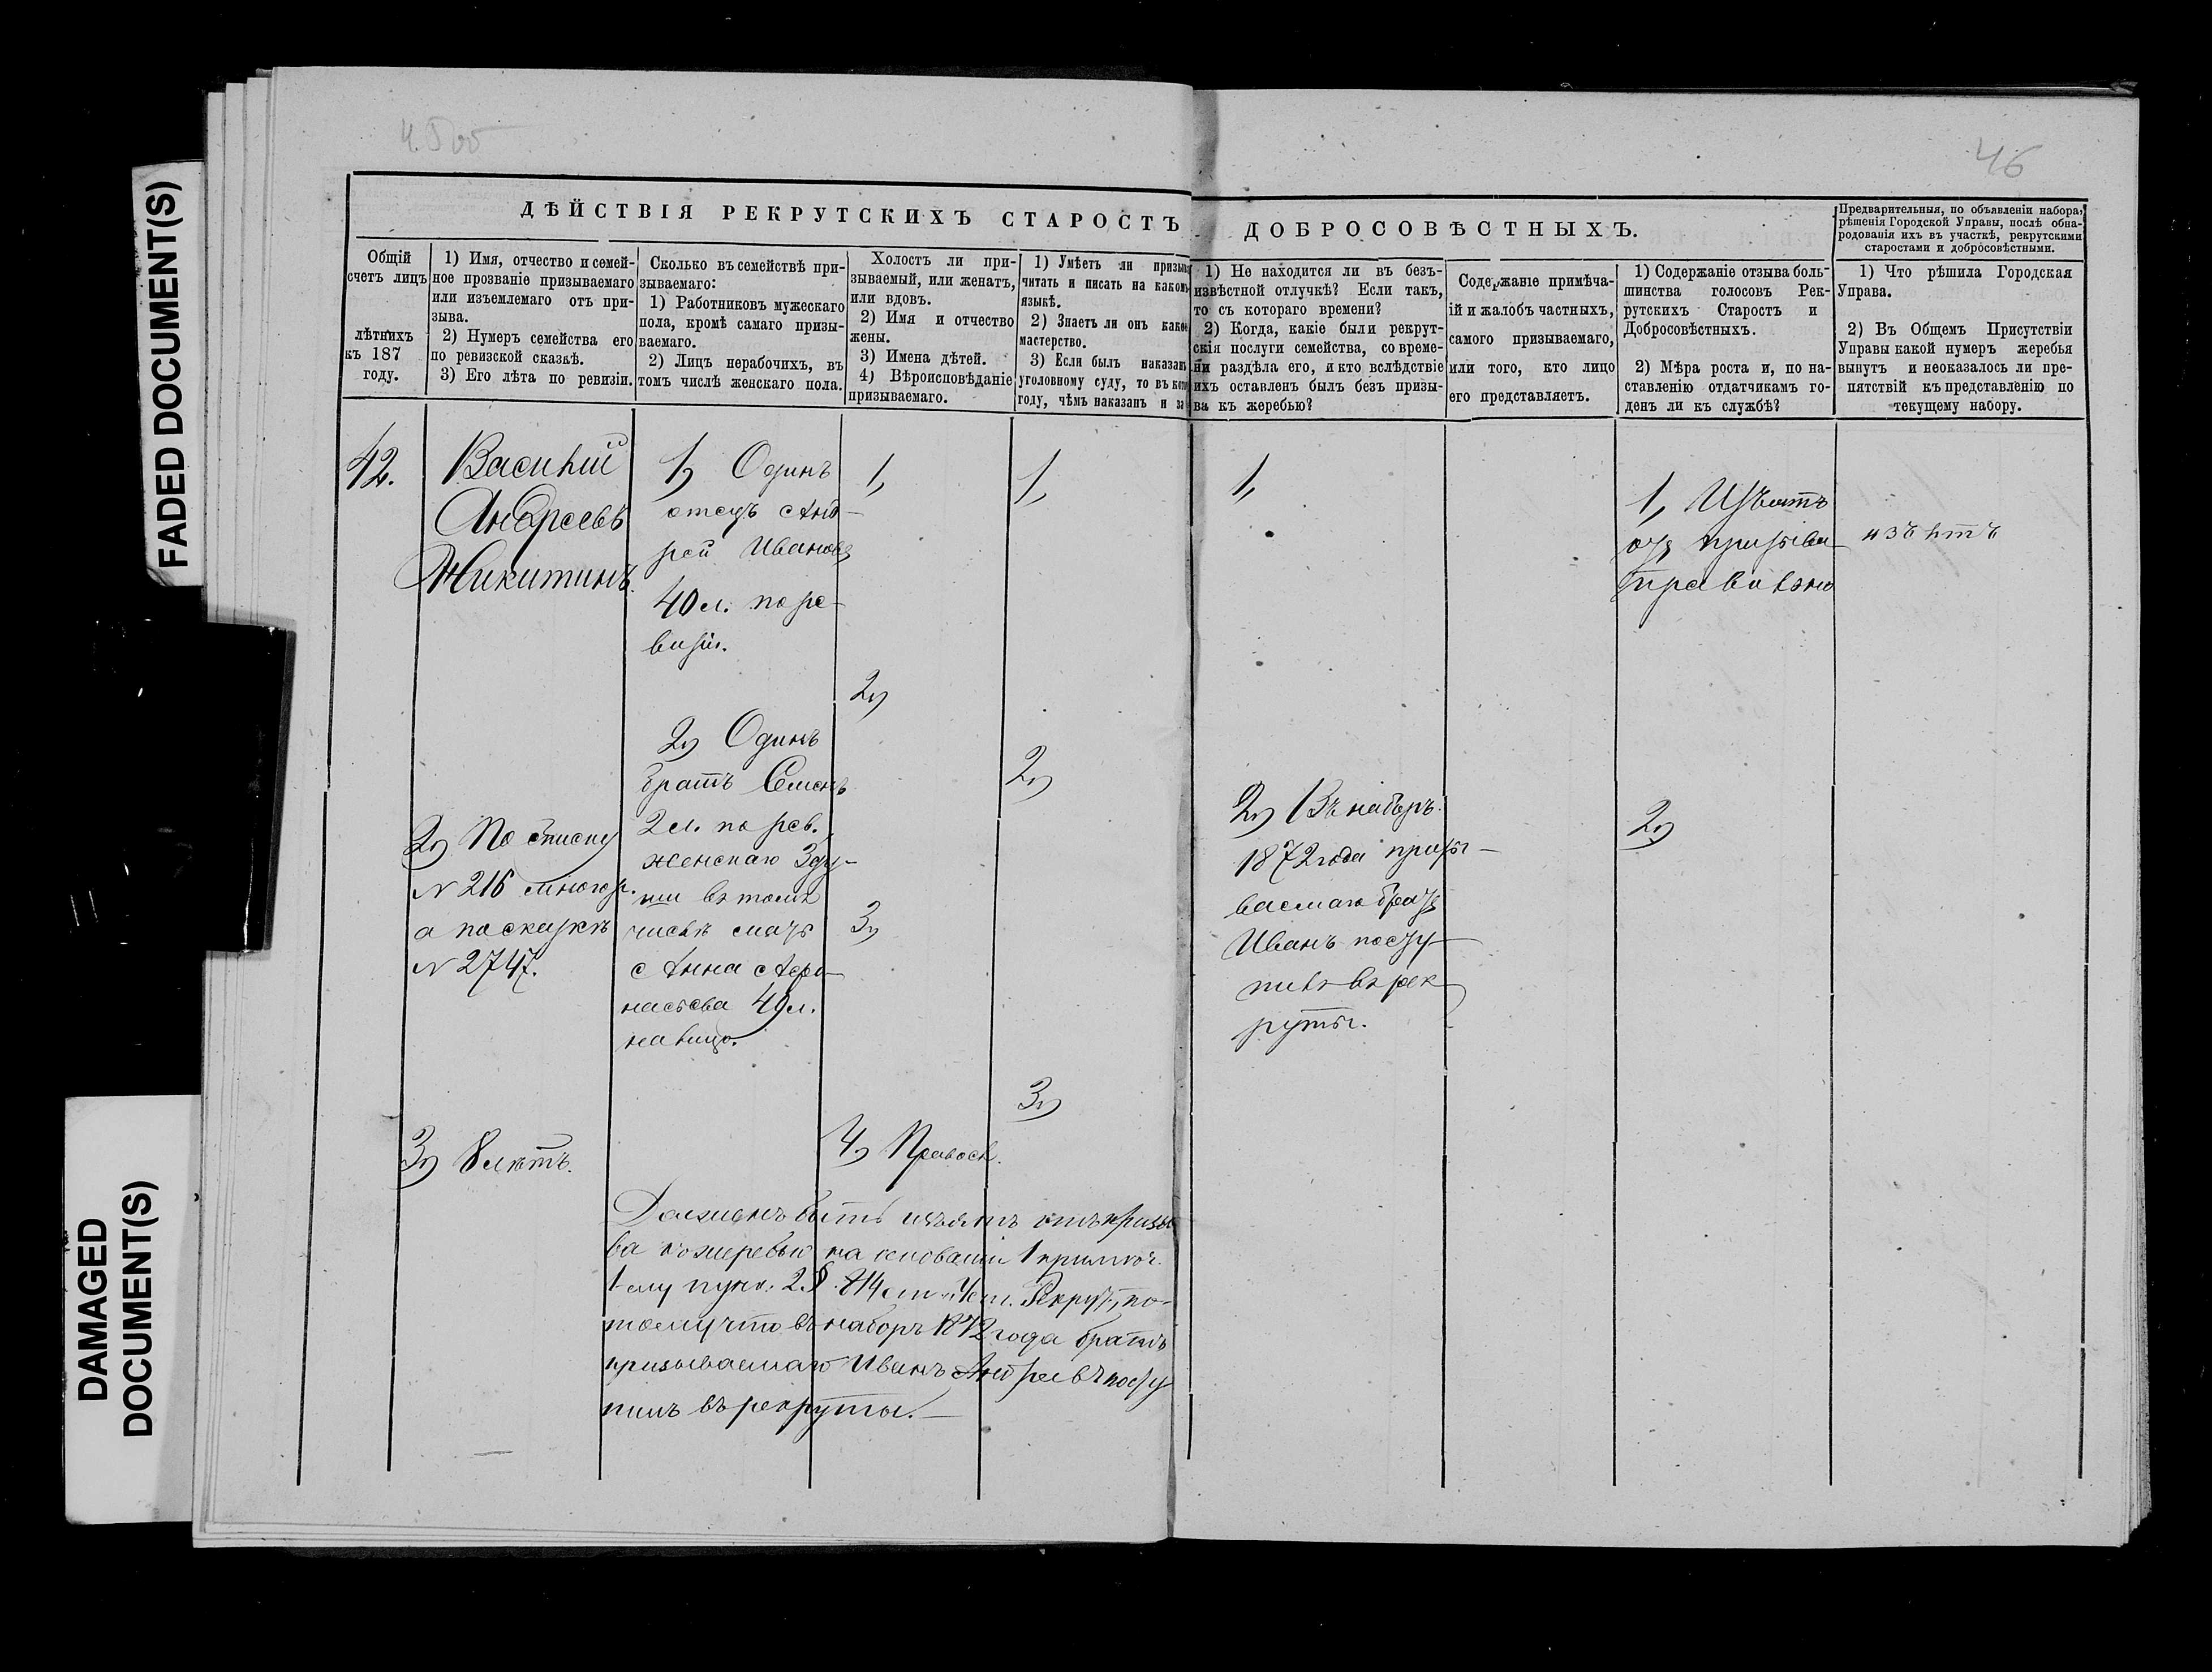 FADED DOCUMENT(S)
DAMAGED
DOCUMENT(S)
46
ДѢЙСТВІЯ РЕКРУТСКИХЪ СТАРОСТЪ
ДОБРОСОВѢСТНЫХЪ.
Общій
счетъ лицъ
лѣтнихъ
къ 187
году.
1) Имя, отчество и семей-
ное прозваніе призываемаго
или изъемлемаго отъ при-
зыва.
2) Нумеръ семейства его
по ревизской сказкѣ.
3) Его лѣта по ревизіи.
Сколько въ семействѣ при-
зываемаго:
1) Работниковъ мужескаго
пола, кромѣ самаго призы-
ваемаго.
2) Лицъ нерабочихъ, въ
томъ числѣ женскаго пола.
Холостъ ли при-
зываемый, или женатъ,
или вдовъ.
2) Имя и отчество
жены.
3) Имена дѣтей.
4) Вѣроисповѣданіе
призываемаго.
1) Умѣетъ ли призыв
читать и писать на каком
языкѣ.
2) Знаетъ ли онъ какое
мастерство.
3) Если былъ наказан
уголовному суду, то въ кото
году, чѣмъ наказанъ и за
1) Не находится ли въ безъ-
извѣстной отлучкѣ? Если такъ,
то съ котораго времени?
2) Когда, какіе были рекрут-
скія послуги семейства, со време-
ни раздѣла его, и кто вслѣдствіе
ихъ оставленъ былъ безъ призы-
ва къ жеребью?
Содержаніе примѣча-
ій и жалобъ частныхъ,
самого призываемаго,
или того, кто лицо
его представляетъ.
1) Содержаніе отзыва боль-
шинства голосовъ Рек-
рутскихъ Старостъ и
Добросовѣстныхъ.
2) Мѣра роста и, по на-
ставленію отдатчикамъ го-
денъ ли къ службѣ?
Предварительныя, по объявленіи набора,
рѣшенія Городской Управы, послѣ обна-
родованія ихъ въ участкѣ, рекрутскими
старостами и добросовѣстными.
1) Что рѣшила Городская
Управа.
2) Въ Общемъ Присутствіи
Управы какой нумеръ жеребья
вынутъ и неоказалось ли пре-
пятствій къ представленію по
текущему набору.
42.
Василій
Андреевъ
Никитинъ.
2) По списку
N 216 многор.
а по сказкѣ
N 2747.
3) 8 лѣтъ.
1) Одинъ
отецъ Анд-
рей Ивановъ
40 л. по ре-
визіи.
2) Одинъ
братъ Семенъ
2 л. по рев.
женскаго 3 ду-
ши въ томъ
числѣ мать
Анна Афа-
насьева 49 л.
на лицо.
1,
2)
3)
4) Правосл.
1,
2)
3)
Долженъ быть изъятъ отъ призы
ва к жеребью на основаніи 1 примѣч.
1 му пунк. 2 § 814 ст. 4 т. Рекрут., по-
тому что въ наборъ 1872 года братъ
призываемаго Иванъ Андреевъ посту
пилъ въ рекруты.
1,
2) Въ наборъ
1872 года призы-
ваемаго братъ
Иванъ посту-
пилъ въ рек
руты.
1, Изъятъ
отъ призыва
правильно
2)
изъятъ